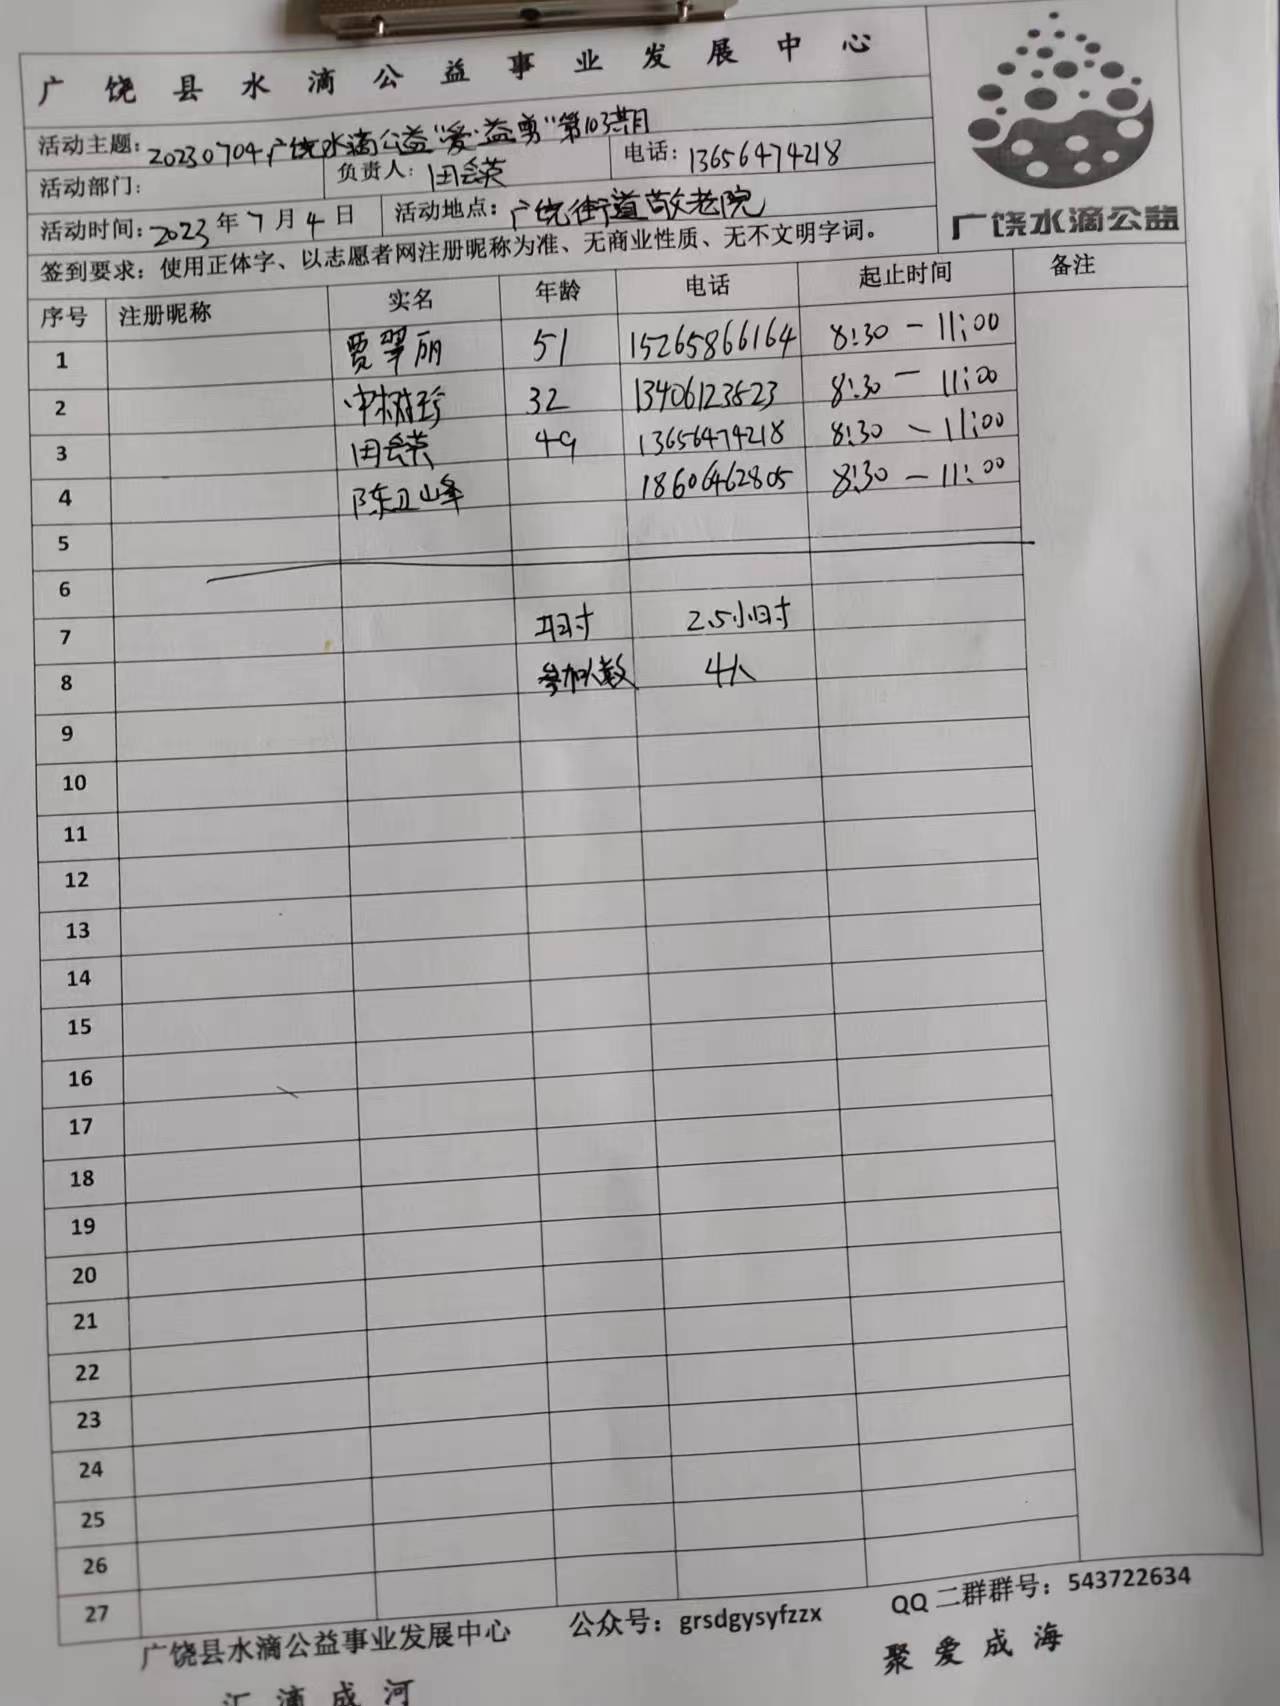 广饶县水滴公益事业发展中心
活动主题：20230704广饶水滴公益"爱·益剪"第103期
活动部门： 负责人：田会英 电话：13656474218
活动时间：2023年7月4日 活动地点：广饶街道敬老院
签到要求：使用正体字、以志愿者网注册昵称为准、无商业性质、无不文明字词。
广饶水滴公益
序号 注册昵称 实名 年龄 电话 起止时间 备注
1 贾翠丽 51 15265866164 8:30-11:00
2 树珍 32 13406123823 8:30-11:00
3 田会英 49 13656474218 8:30-11:00
4 陈卫峰 18606462805 8:30-11:00
5
6
7 用时 2.5小时
8 参加人数 4人
9
10
11
12
13
14
15
16
17
18
19
20
21
22
23
24
25
26
27
广饶县水滴公益事业发展中心 公众号：grsdgysyfzzx QQ二群群号：543722634
汇滴成河 聚爱成海